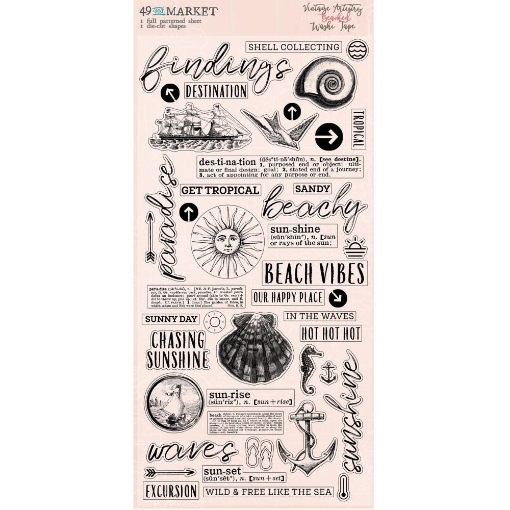 49 AND MARKET
1 full patterned sheet
1 die-cut shapes
Vintage Artistry
Beached
Washi Tape
SHELL COLLECTING
findings
DESTINATION
TROPICAL
des·ti·na·tion (dĕs′tĭ-nā′shŭn), n. [see destine].
1. purposed end or object: ulti-
mate or final design: goal: 2. stated end of a journey;
3. act of appointing for any purpose or end.
paradise
GET TROPICAL
SANDY
beachy
sun·shine
(sŭn′shīn″), n. [sun
or rays of the sun;
BEACH VIBES
OUR HAPPY PLACE
SUNNY DAY
IN THE WAVES
HOT HOT HOT
CHASING
SUNSHINE
sunshine
sun·rise
(sŭn′rīz″), n. [sun+rise]
beach
waves
sun·set
(sŭn′sĕt), n. [sun + set]
EXCURSION
WILD & FREE LIKE THE SEA